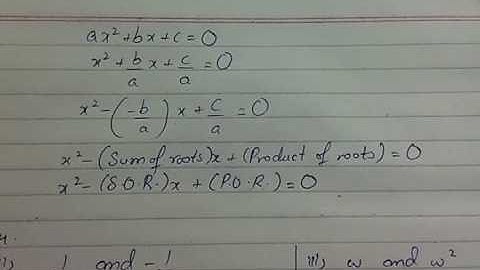 ax² + bx + c = 0
x² + b/a x + c/a = 0
x² - (-b/a) x + c/a = 0
x² - (Sum of roots)x + (Product of roots) = 0
x² - (S.O.R.)x + (P.O.R.) = 0
1 and -1
iii, ω and ω²